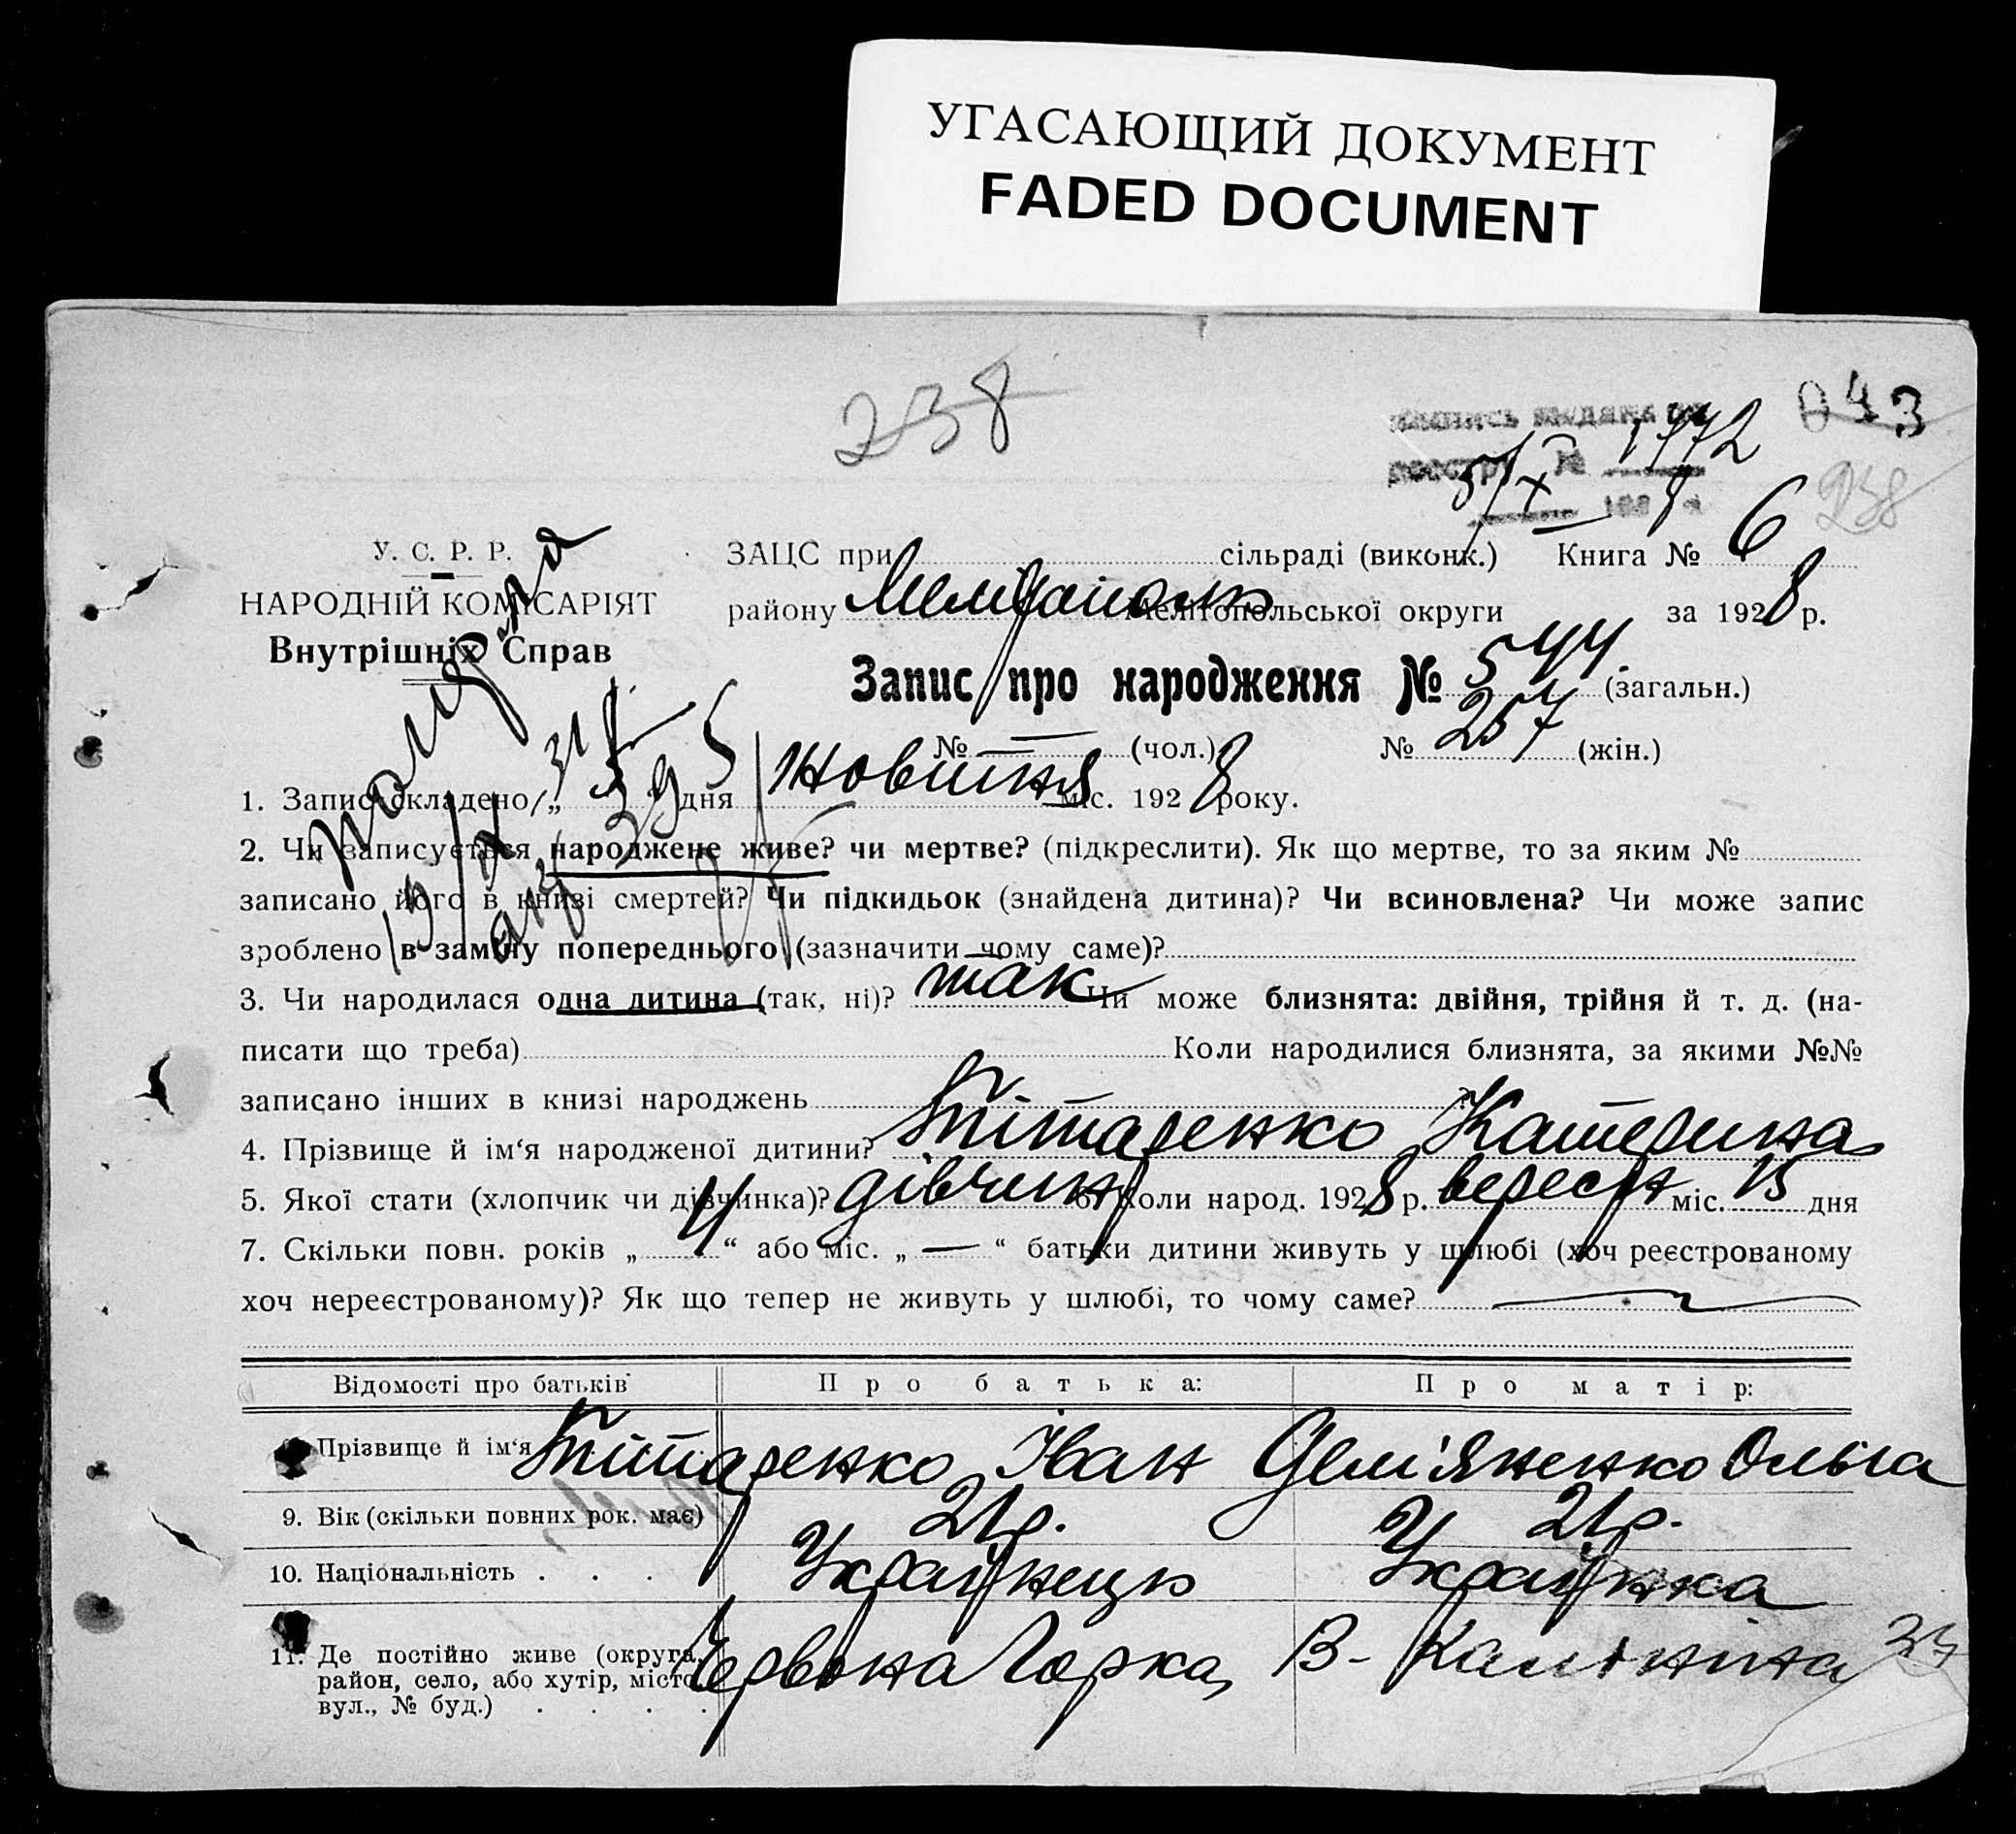 УГАСАЮЩИЙ ДОКУМЕНТ
FADED DOCUMENT
238
043
1772
5/X
238
У. С. Р. Р.
НАРОДНІЙ КОМІСАРІЯТ
Внутрішніх Справ
ЗАЦС при сільраді (виконк.) Книга № 6
району Мелітополь Мелітопольської округи за 1928 р.
Запис про народження № 544 (загальн.)
№ — (чол.) № 257 (жін.)
1. Запис складено „ 5 “ дня Жовтня міс. 1928 року.
2. Чи записується народжене живе? чи мертве? (підкреслити). Як що мертве, то за яким №
записано його в книзі смертей? Чи підкидьок (знайдена дитина)? Чи всиновлена? Чи може запис
зроблено в заміну попереднього (зазначити чому саме)?
3. Чи народилася одна дитина (так, ні)? так Чи може близнята: двійня, трійня й т. д. (на-
писати що треба) Коли народилися близнята, за якими №№
записано інших в книзі народжень ?
4. Прізвище й ім‘я народженої дитини? Тітаренко Катерина
5. Якої стати (хлопчик чи дівчинка)? дівчин 6. Коли народ. 1928 р. вересн міс. 15 дня
7. Скільки повн. років „ 4 “ або міс. „ — “ батьки дитини живуть у шлюбі (хоч реєстрованому
хоч нереєстрованому)? Як що тепер не живуть у шлюбі, то чому саме?
Відомості про батьків Про батька: Про матір:
Прізвище й ім‘я Тітаренко Іван Дем'яненко Ольга
9. Вік (скільки повних рок. має) 21р. 21р.
10. Національність . . . Українець Українка
11. Де постійно живе (округа, Червона Горка, В- Калініна 23
район, село, або хутір, місто,
вул., № буд.) . . . .